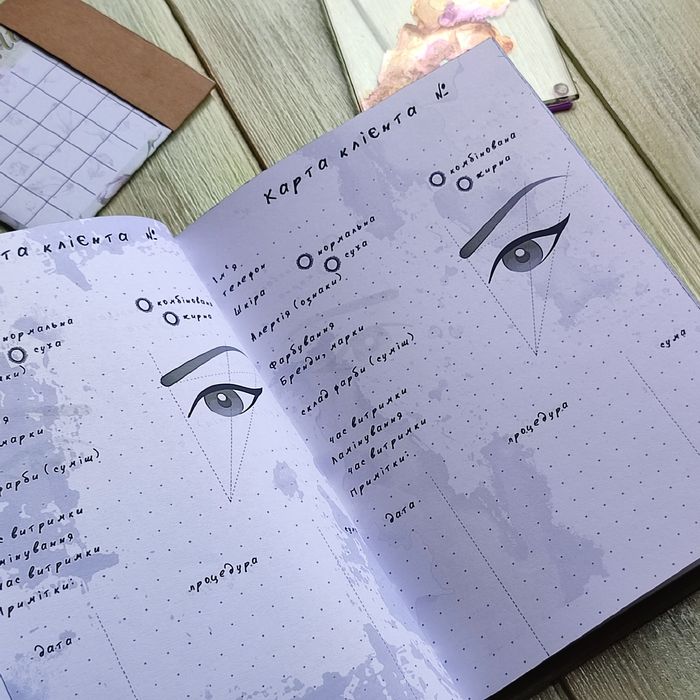 та клієнта №
нормальна комбінована
суха жирна
ки)
я
марки
фарби (суміш)
ас витримки
мінування
час витримки
Примітки:
процедура
дата
Карта клієнта №
Ім'я
телефон
Шкіра нормальна комбінована
суха жирна
Алергія (ознаки)
Фарбування
Бренди, марки
склад фарби (суміш)
час витримки
Ламінування
час витримки
Примітки:
дата процедура сума